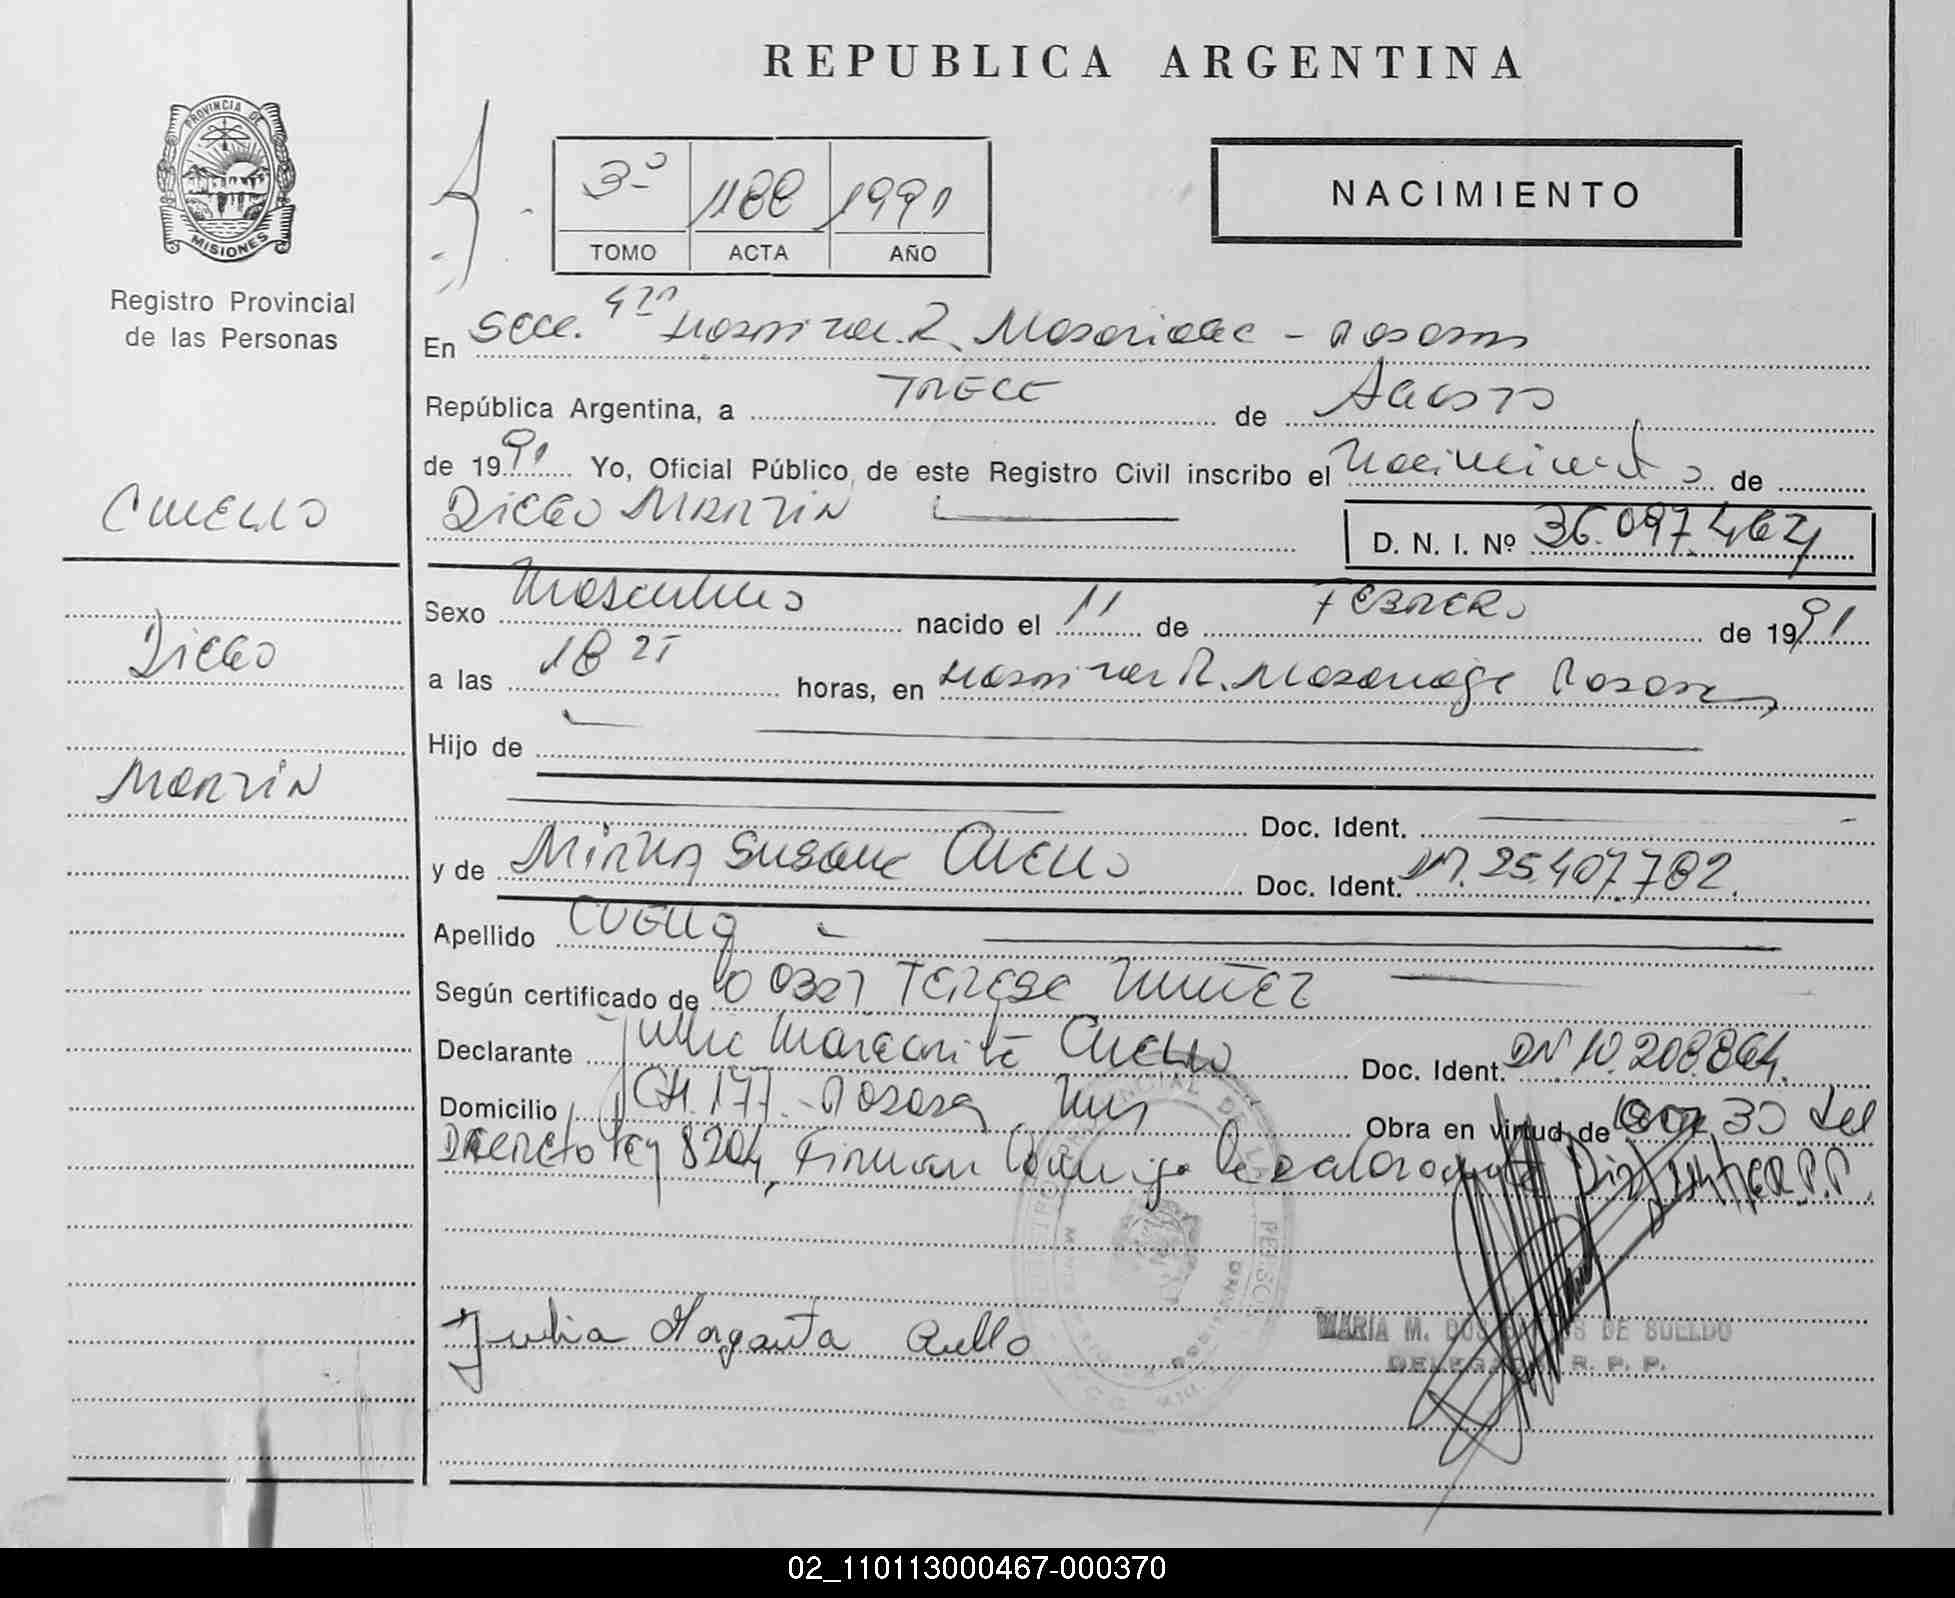 REPUBLICA ARGENTINA
PROVINCIA DE
MISIONES
Registro Provincial
de las Personas
3º 188 1991
TOMO ACTA AÑO
NACIMIENTO
En Secc. 4ta Hospital R. Madariaga - Posadas
República Argentina, a TRECE de Agosto
de 1991 Yo, Oficial Público de este Registro Civil inscribo el Nacimiento de
DIEGO MARTIN
D. N. I. Nº 36.097.464
CUELLO
Diego
Martin
Sexo Masculino nacido el 11 de FEBRERO de 1991
a las 18 25 horas, en Hospital R. Madariaga Posadas
Hijo de
Doc. Ident.
y de Mirna Susana Cuello Doc. Ident. DNI. 25.407.782.
Apellido CUELLO
Según certificado de Teresa Nuñez
Declarante Julia Margarita Cuello Doc. Ident. DNI 10.208.864.
Domicilio CH. 177 - Posadas Mns Obra en virtud de 30 del
Decreto Ley 8204, Firman
Julia Margarita Cuello
MARIA M. DOS SANTOS DE SUELDO
DELEGADA R. P. P.
02_110113000467-000370